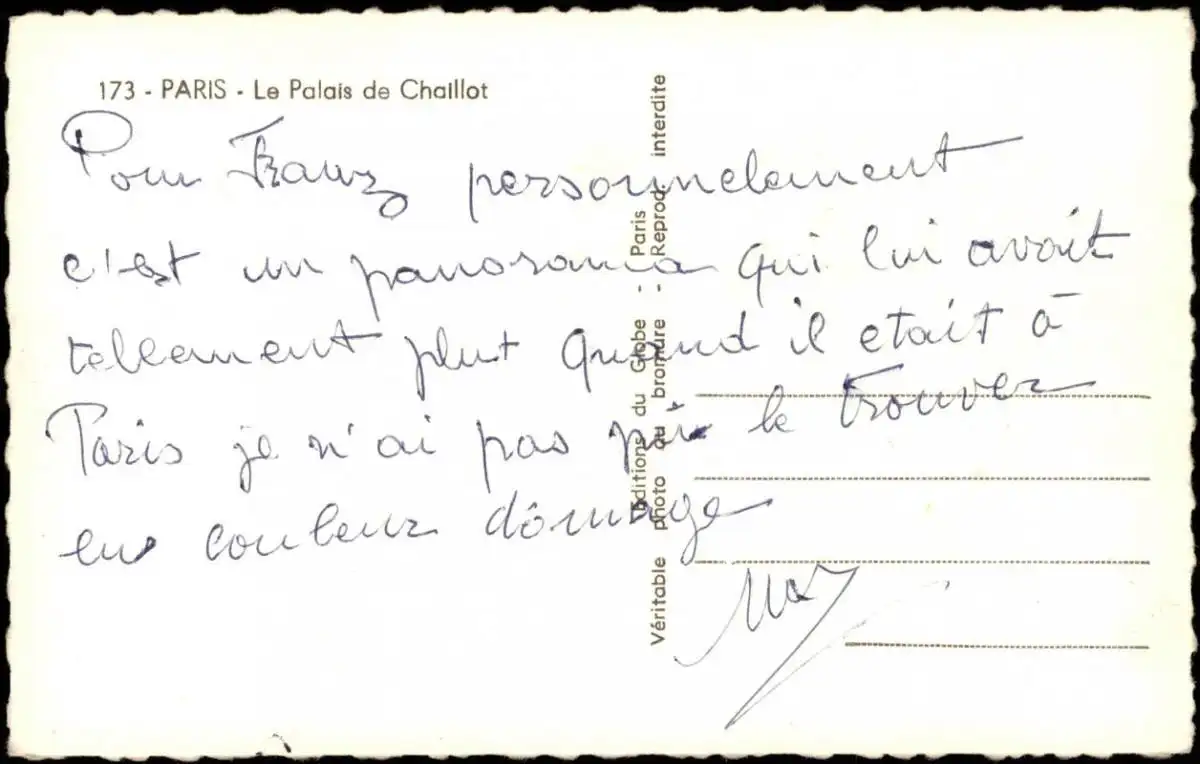 173 - PARIS - Le Palais de Chaillot
Pour Franz personnelement
c'est un panorama qui lui avait
tellement plut quand il etait à
Paris je n'ai pas pû le trouver
en couleur dômage
Éditions du Globe - Paris
Véritable photo au bromure - Reprod. interdite